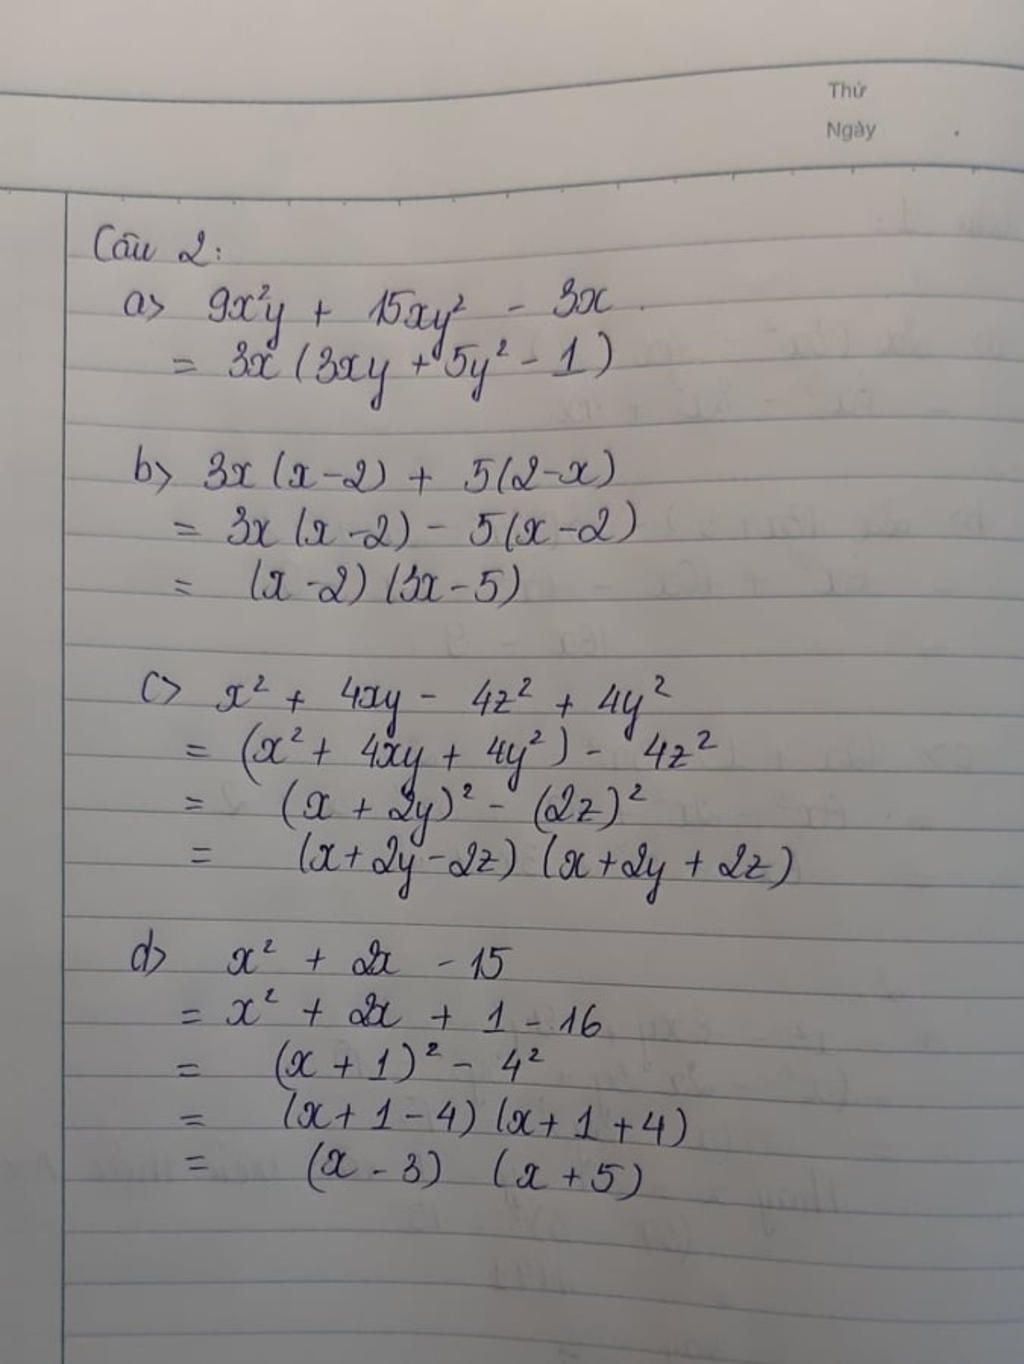 Thứ
Ngày
Câu 2:
a> 9x²y + 15xy² - 3x
= 3x (3xy + 5y² - 1)
b> 3x (x-2) + 5(2-x)
= 3x (x-2) - 5(x-2)
= (x-2) (3x-5)
c> x² + 4xy - 4z² + 4y²
= (x² + 4xy + 4y²) - 4z²
= (x + 2y)² - (2z)²
= (x+2y-2z) (x+2y+2z)
d> x² + 2x - 15
= x² + 2x + 1 - 16
= (x + 1)² - 4²
= (x+1-4) (x+1+4)
= (x-3) (x+5)